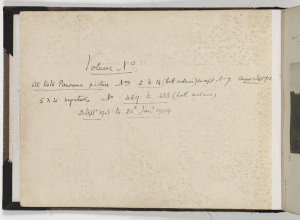 Volume No
At Kate Panorama picture Nos 2 & 14 (both inclusive) except No 7
5 x 4 negatives No 489 to 653 (both inclusive)
2 Sept 1903 to 20th Jan 1904